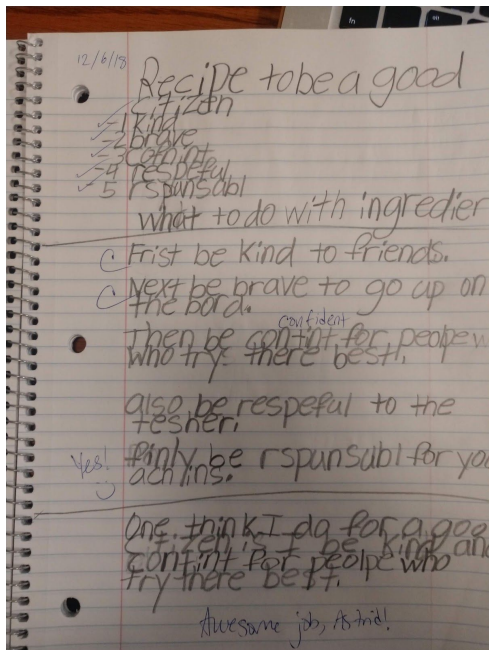 12/6/18
Recipe to be a good
citizen
1 kind
2 brave
3 contint
4 respeful
5 rspunsabl
what to do with ingredien
C Frist be kind to friends.
C Next be brave to go up on
the bord.
confident
Then be contint for peolpe w
who try there best.
also be respeful to the
tesher.
Yes! finly be rspunsabl for you
achins.
One think I do for a goo
citizen is I be kind and
contint for peolpe who
try there best.
Awesome job, Astrid!